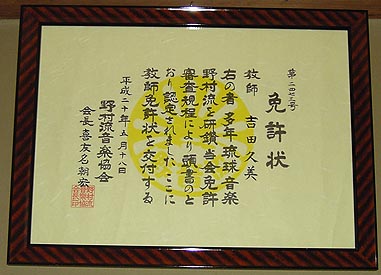 第二四七三号
免許状
教師 吉田久美
右の者多年琉球音楽
野村流を研鑽当会免許
審査規程により頭書のと
おり認定されましたここに
教師免許状を交付する
平成二十年五月十八日
野村流音楽協会
会長 喜友名朝宏